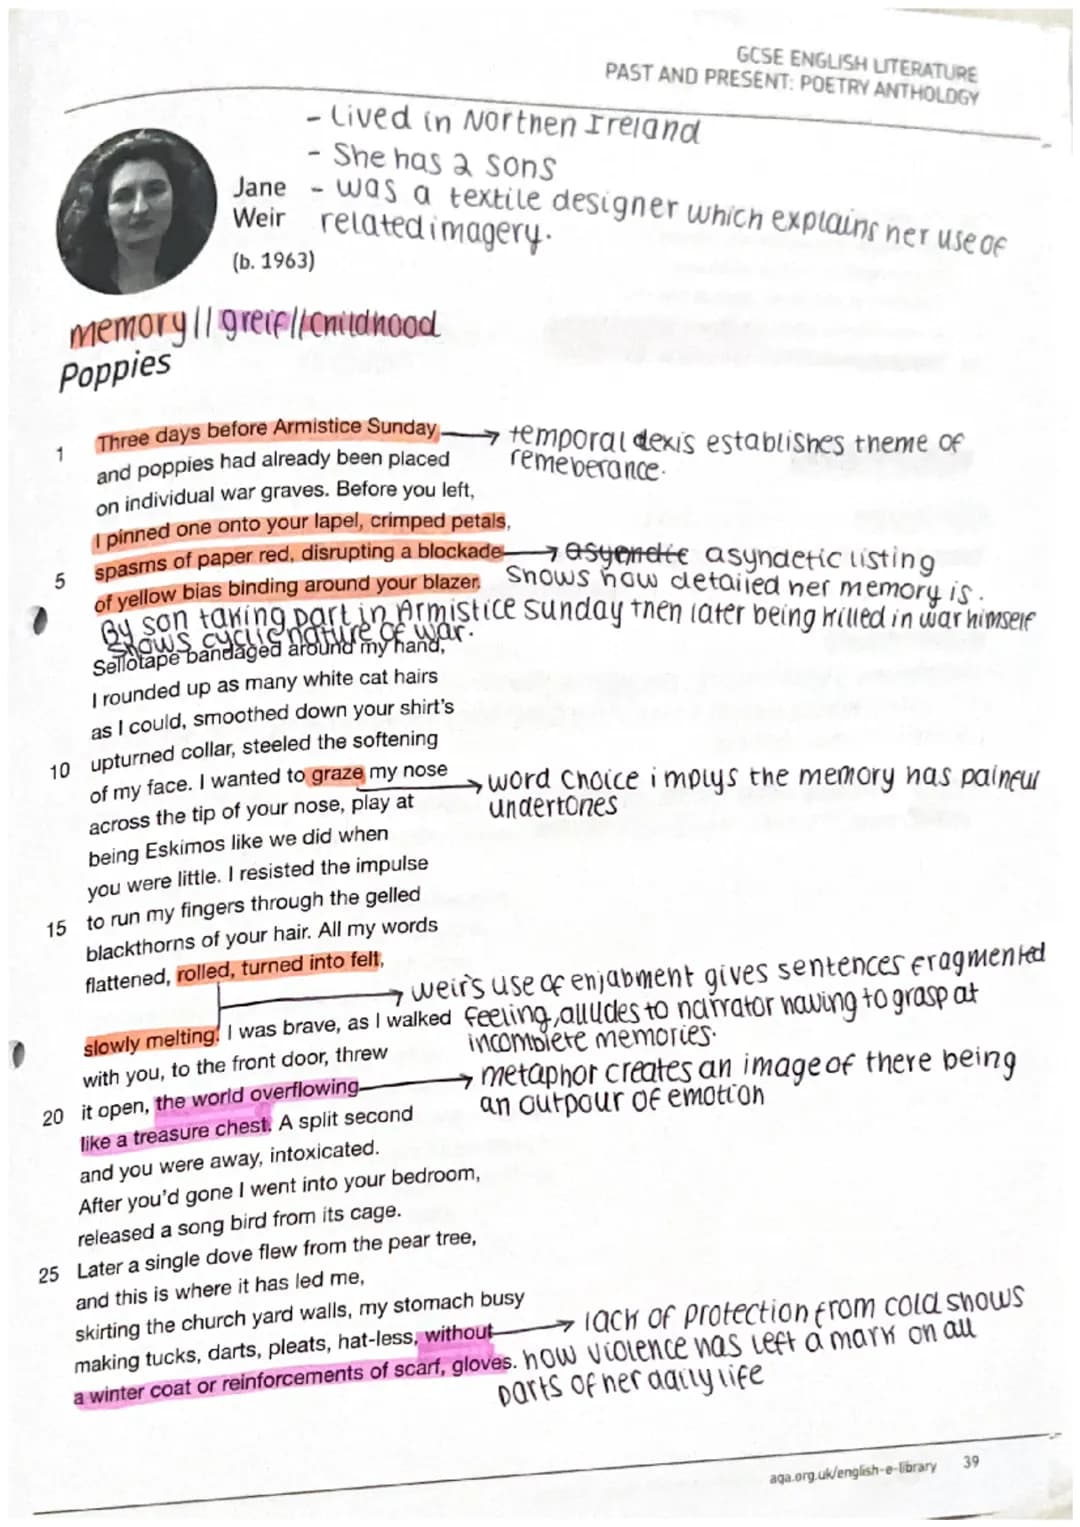 GCSE ENGLISH LITERATURE
PAST AND PRESENT: POETRY ANTHOLOGY
- Lived in Northen Ireland
- She has 2 sons
Jane - was a textile designer which explains her use of
Weir related imagery.
(b. 1963)
memory // greif // childhood
Poppies
1 Three days before Armistice Sunday → temporal dexis establishes theme of
and poppies had already been placed remeberance.
on individual war graves. Before you left,
I pinned one onto your lapel, crimped petals,
spasms of paper red, disrupting a blockade → asyendic asyndetic listing
5 of yellow bias binding around your blazer. shows how detailed her memory is.
By son taking part in Armistice sunday then later being killed in war himself
shows cyclic nature of war.
Sellotape bandaged around my hand,
I rounded up as many white cat hairs
as I could, smoothed down your shirt's
10 upturned collar, steeled the softening
of my face. I wanted to graze my nose → word choice implys the memory has painful
across the tip of your nose, play at undertones
being Eskimos like we did when
you were little. I resisted the impulse
15 to run my fingers through the gelled
blackthorns of your hair. All my words
flattened, rolled, turned into felt,
→ weir's use of enjabment gives sentences fragmented
slowly melting. I was brave, as I walked feeling, alludes to narrator having to grasp at
with you, to the front door, threw incomplete memories.
20 it open, the world overflowing → metaphor creates an image of there being
like a treasure chest. A split second an outpour of emotion
and you were away, intoxicated.
After you'd gone I went into your bedroom,
released a song bird from its cage.
25 Later a single dove flew from the pear tree,
and this is where it has led me,
skirting the church yard walls, my stomach busy
making tucks, darts, pleats, hat-less, without → lack of protection from cold shows
a winter coat or reinforcements of scarf, gloves. how violence has left a mark on all
parts of her daily life
aqa.org.uk/english-e-library 39